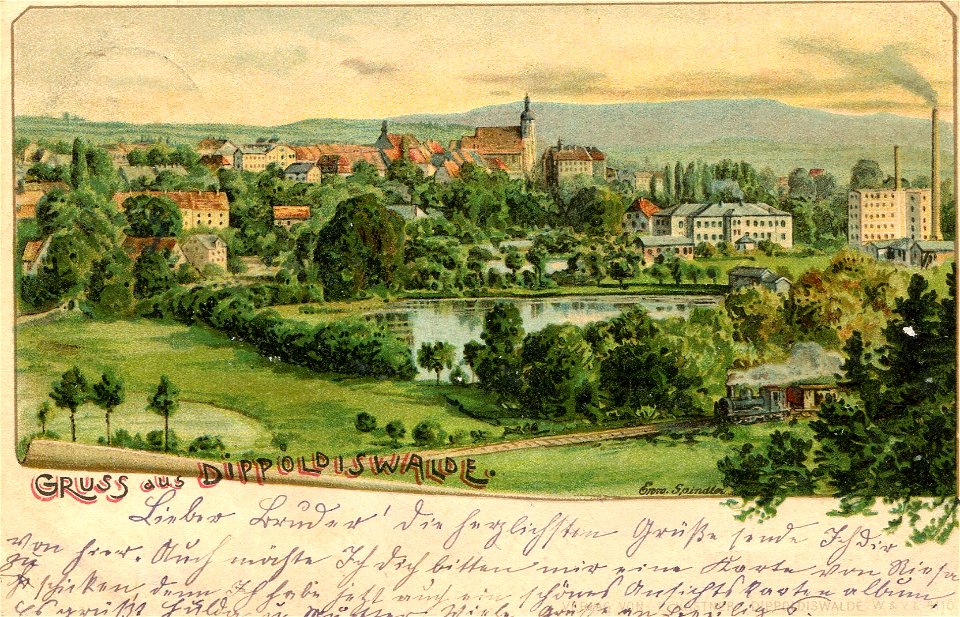 GRUSS aus DIPPOLDISWALDE.
Erw. Spindler
Lieber Bruder! Die herzlichsten Grüße sende Ich dir
von hier. Auch möchte Ich dich bitten mir eine Karte von Riesa
zu schicken, denn Ich habe jetzt auch ein schönes Ansichtskartenalbum
es grüßt Hulda u. Mutter Viele
VERLAG VON DIPPOLDISWALDE